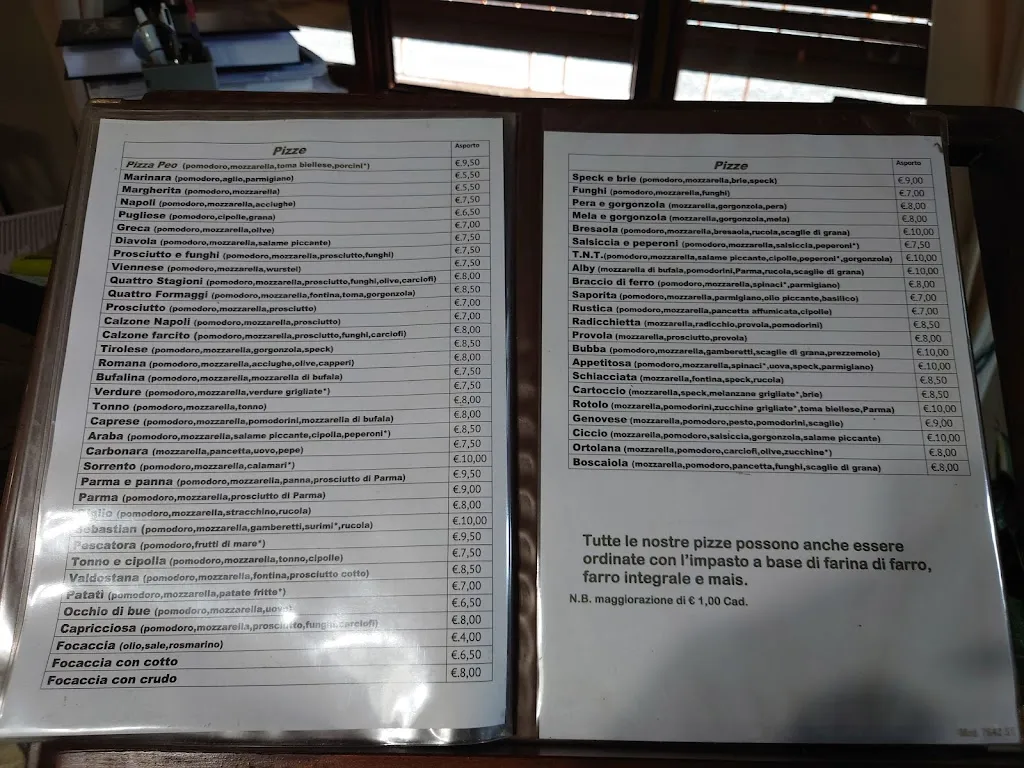 Pizze Asporto
Pizza Peo (pomodoro,mozzarella,toma biellese,porcini*) €.9,50
Marinara (pomodoro,aglio,parmigiano) €.5,50
Margherita (pomodoro,mozzarella) €.5,50
Napoli (pomodoro,mozzarella,acciughe) €.7,50
Pugliese (pomodoro,cipolle,grana) €.6,50
Greca (pomodoro,mozzarella,olive) €.7,00
Diavola (pomodoro,mozzarella,salame piccante) €.7,50
Prosciutto e funghi (pomodoro,mozzarella,prosciutto,funghi) €.7,50
Viennese (pomodoro,mozzarella,wurstel) €.7,50
Quattro Stagioni (pomodoro,mozzarella,prosciutto,funghi,olive,carciofi) €.8,00
Quattro Formaggi (pomodoro,mozzarella,fontina,toma,gorgonzola) €.8,50
Prosciutto (pomodoro,mozzarella,prosciutto) €.7,00
Calzone Napoli (pomodoro,mozzarella,prosciutto) €.7,00
Calzone farcito (pomodoro,mozzarella,prosciutto,funghi,carciofi) €.8,00
Tirolese (pomodoro,mozzarella,gorgonzola,speck) €.8,50
Romana (pomodoro,mozzarella,acciughe,olive,capperi) €.8,00
Bufalina (pomodoro,mozzarella,mozzarella di bufala) €.7,50
Verdure (pomodoro,mozzarella,verdure grigliate*) €.7,50
Tonno (pomodoro,mozzarella,tonno) €.8,00
Caprese (pomodoro,mozzarella,pomodorini,mozzarella di bufala) €.8,00
Araba (pomodoro,mozzarella,salame piccante,cipolla,peperoni*) €.8,50
Carbonara (mozzarella,pancetta,uovo,pepe) €.7,50
Sorrento (pomodoro,mozzarella,calamari*) €.10,00
Parma e panna (pomodoro,mozzarella,panna,prosciutto di Parma) €.9,50
Parma (pomodoro,mozzarella,prosciutto di Parma) €.9,00
(pomodoro,mozzarella,stracchino,rucola) €.8,00
Sebastian (pomodoro,mozzarella,gamberetti,surimi*,rucola) €.10,00
Pescatora (pomodoro,frutti di mare*) €.9,50
Tonno e cipolla (pomodoro,mozzarella,tonno,cipolle) €.7,50
Valdostana (pomodoro,mozzarella,fontina,prosciutto cotto) €.8,50
Patati (pomodoro,mozzarella,patate fritte*) €.7,00
Occhio di bue (pomodoro,mozzarella,uovo) €.6,50
Capricciosa (pomodoro,mozzarella,prosciutto,funghi,carciofi) €.8,00
Focaccia (olio,sale,rosmarino) €.4,00
Focaccia con cotto €.6,50
Focaccia con crudo €.8,00
Pizze Asporto
Speck e brie (pomodoro,mozzarella,brie,speck) €.9,00
Funghi (pomodoro,mozzarella,funghi) €.7,00
Pera e gorgonzola (mozzarella,gorgonzola,pera) €.8,00
Mela e gorgonzola (mozzarella,gorgonzola,mela) €.8,00
Bresaola (pomodoro,mozzarella,bresaola,rucola,scaglie di grana) €.10,00
Salsiccia e peperoni (pomodoro,mozzarella,salsiccia,peperoni*) €.7,50
T.N.T.(pomodoro,mozzarella,salame piccante,cipolle,peperoni*,gorgonzola) €.10,00
Alby (mozzarella di bufala,pomodorini,Parma,rucola,scaglie di grana) €.10,00
Braccio di ferro (pomodoro,mozzarella,spinaci*,parmigiano) €.8,00
Saporita (pomodoro,mozzarella,parmigiano,olio piccante,basilico) €.7,00
Rustica (pomodoro,mozzarella,pancetta affumicata,cipolle) €.7,00
Radicchietta (mozzarella,radicchio,provola,pomodorini) €.8,50
Provola (mozzarella,prosciutto,provola) €.8,00
Bubba (pomodoro,mozzarella,gamberetti,scaglie di grana,prezzemolo) €.10,00
Appetitosa (pomodoro,mozzarella,spinaci*,uova,speck,parmigiano) €.10,00
Schiacciata (mozzarella,fontina,speck,rucola) €.8,50
Cartoccio (mozzarella,speck,melanzane grigliate*,brie) €.8,50
Rotolo (mozzarella,pomodorini,zucchine grigliate*,toma biellese,Parma) €.10,00
Genovese (mozzarella,pomodoro,pesto,pomodorini,scaglie) €.9,00
Ciccio (mozzarella,pomodoro,salsiccia,gorgonzola,salame piccante) €.10,00
Ortolana (mozzarella,pomodoro,carciofi,olive,zucchine*) €.8,00
Boscaiola (mozzarella,pomodoro,pancetta,funghi,scaglie di grana) €.8,00
Tutte le nostre pizze possono anche essere
ordinate con l'impasto a base di farina di farro,
farro integrale e mais.
N.B. maggiorazione di € 1,00 Cad.